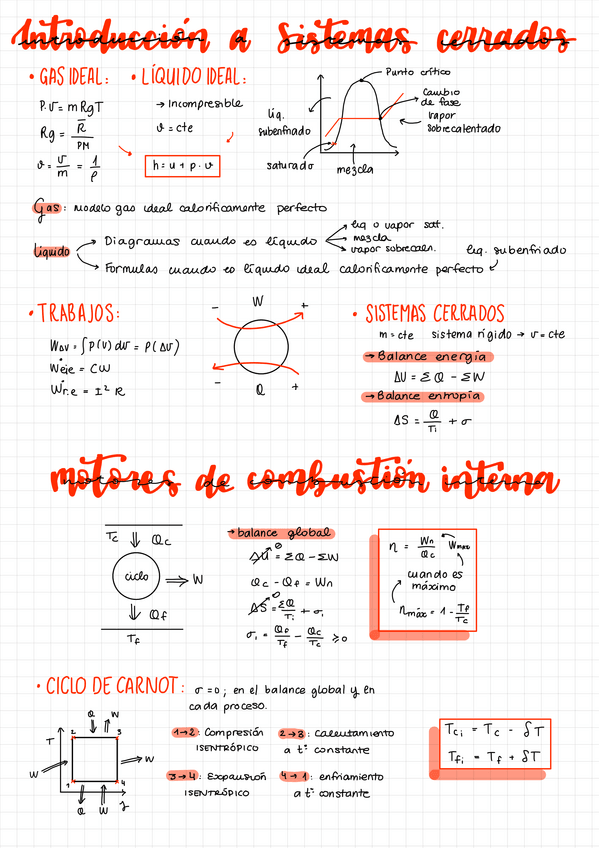 Introducción a Sistemas cerrados
• GAS IDEAL:
P.V = m Rg T
Rg = R̅ / PM
v = V / m = 1 / ρ
• LÍQUIDO IDEAL:
→ Incompresible
v = cte
h = u + p · v
Punto crítico
cambio de fase
vapor sobrecalentado
líq. subenfriado
saturado
mezcla
Gas: modelo gas ideal calorificamente perfecto
líquido
→ Diagramas cuando es líquido
líq o vapor sat.
mezcla
vapor sobrecalen.
líq. subenfriado
→ Formulas cuando es líquido ideal calorificamente perfecto
• TRABAJOS:
WΔV = ∫P(V) dV = P(ΔV)
Ẇeje = CW
Ẇr.e = I² R
- W +
- Q +
• SISTEMAS CERRADOS
m = cte sistema rígido → V = cte
→ Balance energía
ΔU = ΣQ - ΣW
→ Balance entropía
ΔS = Q / Ti + σ
motores de combustión interna
Tc Qc
ciclo
W
Qf
Tf
→ balance global
ΔU⁰ = ΣQ - ΣW
Qc - Qf = Wn
ΔS⁰ = ΣQ / Ti + σi
σi = Qf / Tf - Qc / Tc ≥ 0
η = Wn / Qc Wmax
cuando es máximo
ηmáx = 1 - Tf / Tc
• CICLO DE CARNOT: σ = 0; en el balance global y en
cada proceso.
Q W
T 2 3
W W
1 4
Q W
1→2: Compresión
ISENTRÓPICO
2→3: Calentamiento
a tª constante
3→4: Expansión
ISENTRÓPICO
4→1: enfriamiento
a tª constante
Tci = Tc - δT
Tfi = Tf + δT